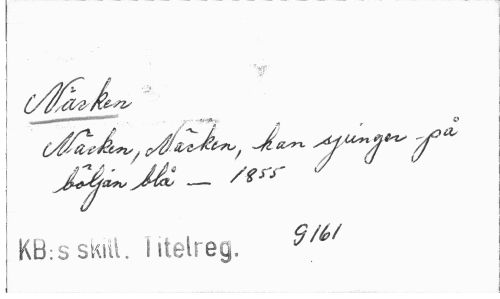 Näcken
Näcken, Näcken, han sjunger på
böljan blå — 1855
G 161
KB:s skill. Titelreg.